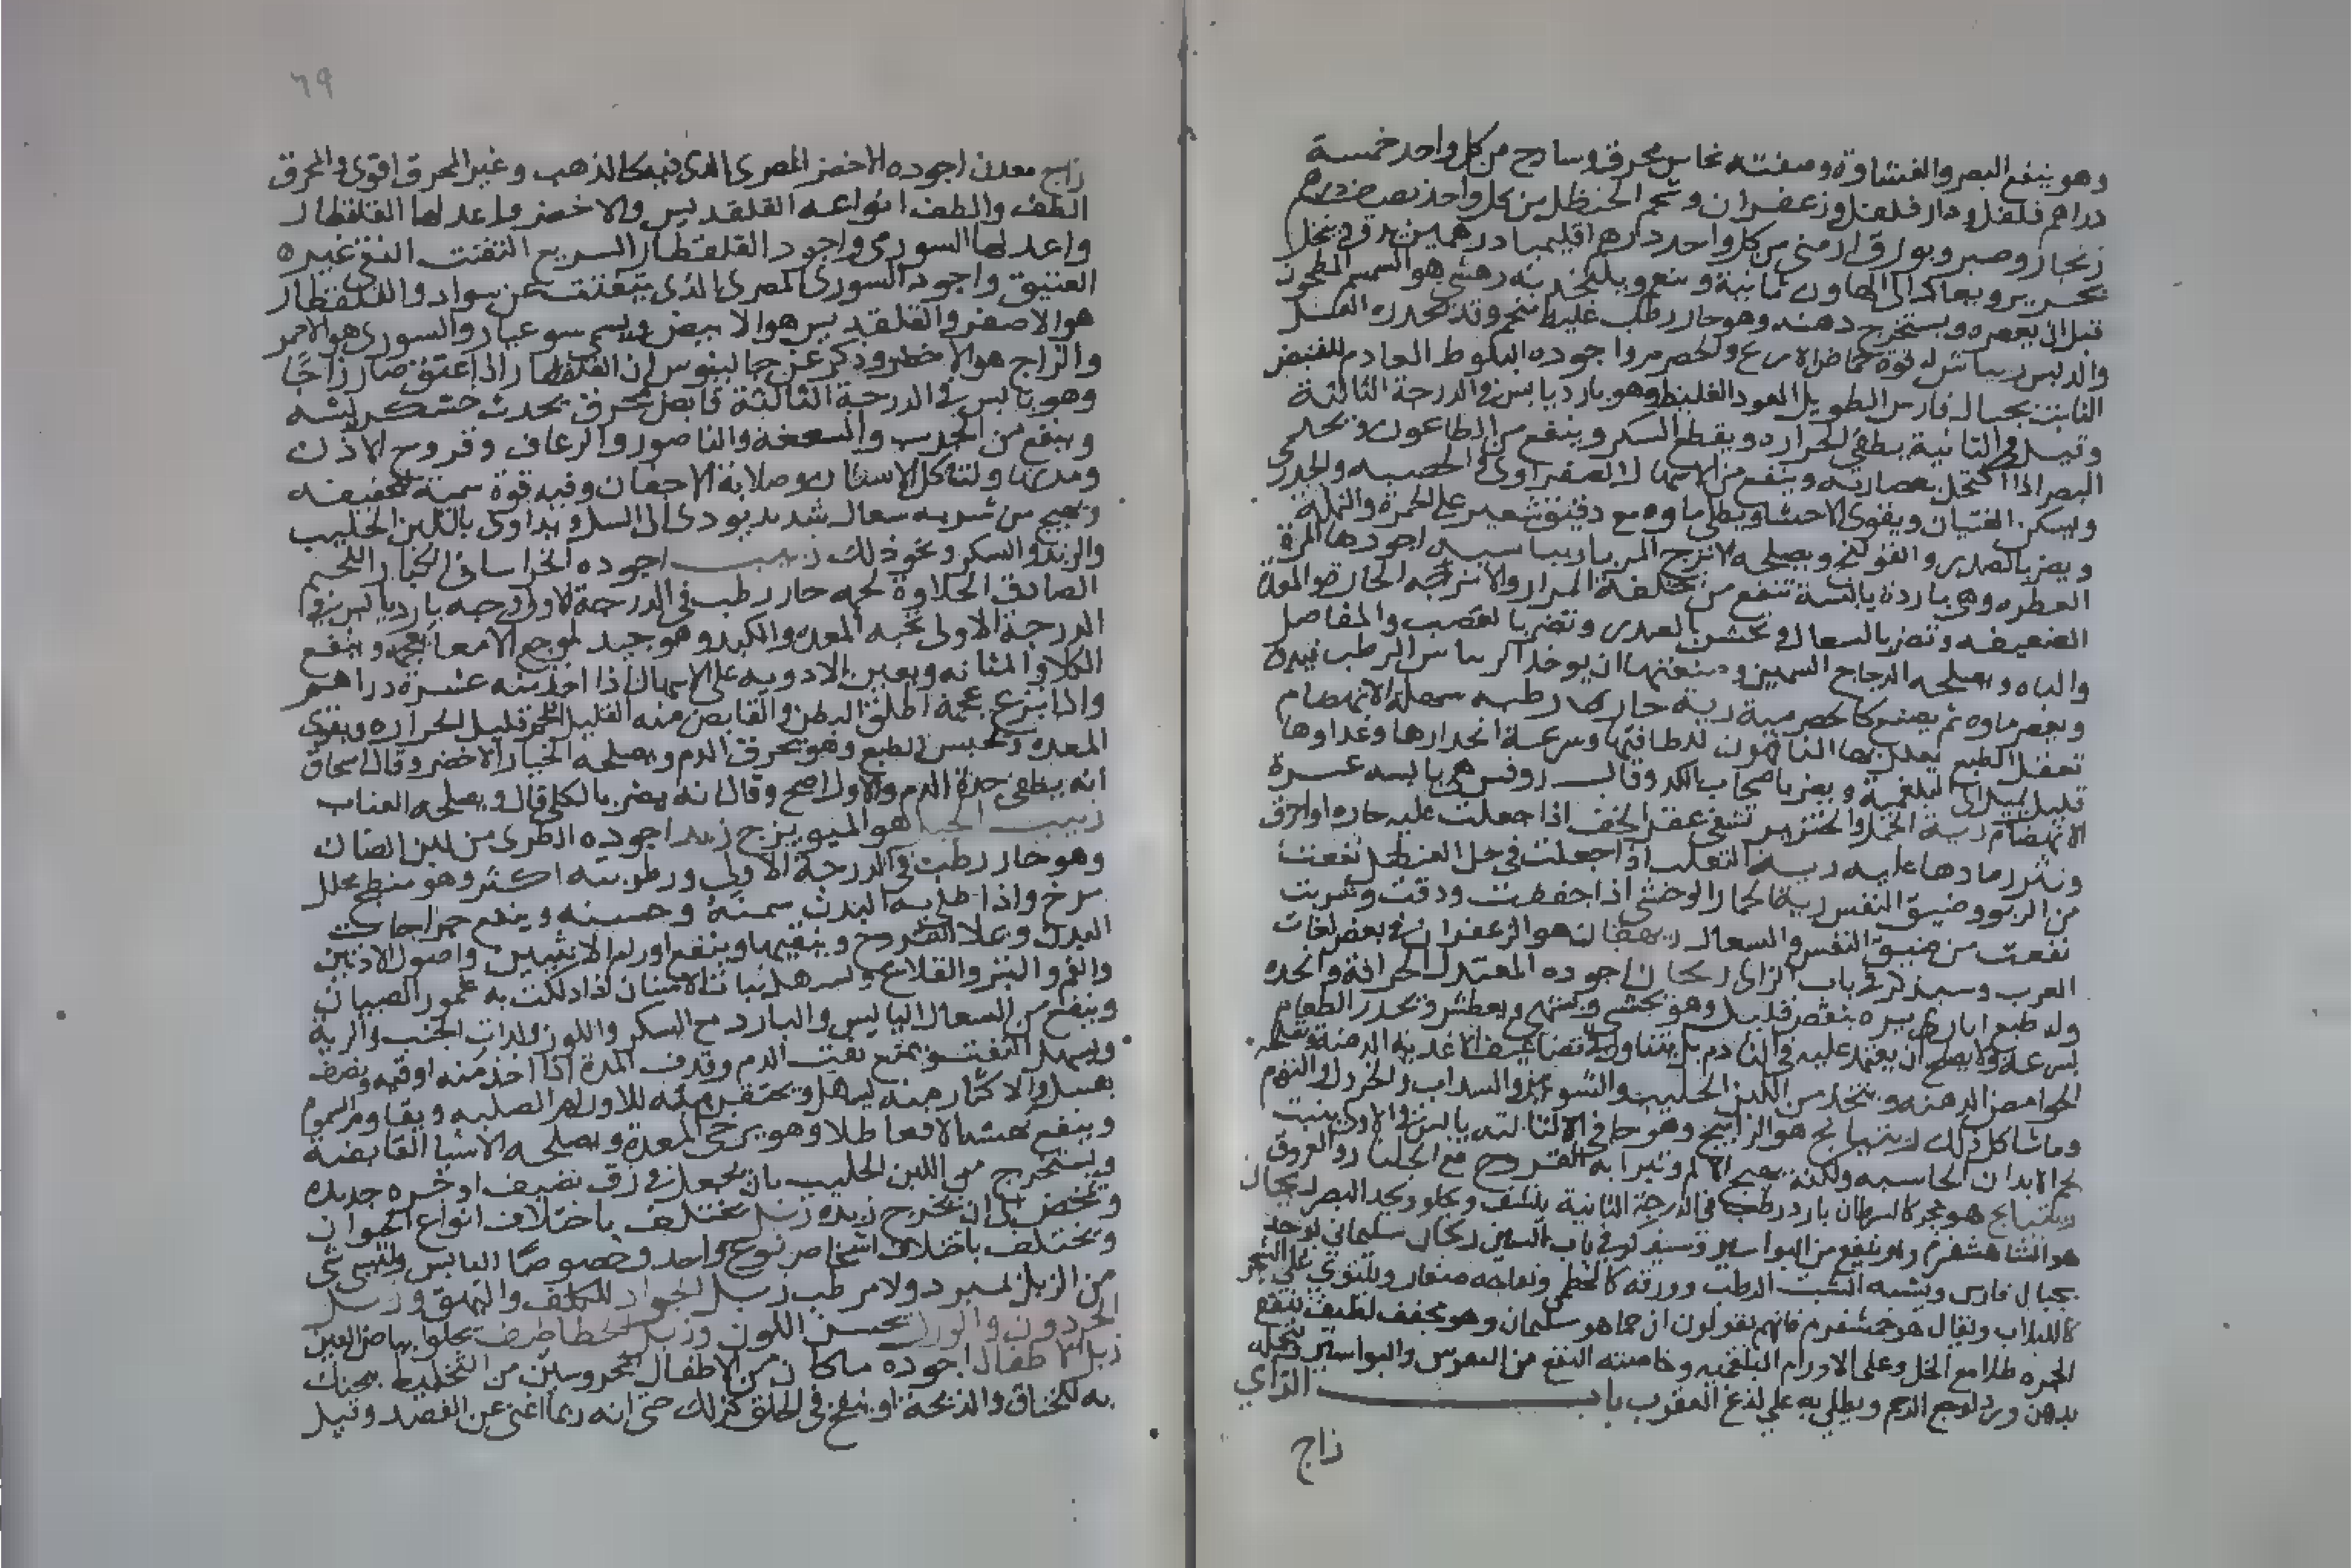 وهو ينفع البصر والغشاوة وصفته نحاس محرق وسادج من كل واحد خمسة
دراهم فلفل ودار فلفل وزعفران وشحم الحنظل من كل واحد نصف درهم
زنجار وصبر وبورق ارمني من كل واحد درهم اقليميا درهمين يدق وينخل
بحرير ويعاد الى الهاون ثانية ويرفع ويكتحل به رهشي هو السمسم المطحون
قبل ان يعصر ويستخرج دهنه وهو حار رطب غليظ متخم وقد تحدره العسل
والدبس ريباس له قوة حماض الاترج والحصرم واجوده
النابت بجبال فارس الطويل العود الغليظ وهو بارد يابس في الدرجة الثالثة
وقيل في الثانية يطفي الحراره ويقطع السكر وينفع من الطاعون ويحد
البصر اذا اكتحل بعصارته وينفع من الاسهال الصفراوي والحصبه والجدري
ويسكن الغثيان ويقوي الاحشا ويطلى ماوه مع دقيق شعير على الحمرة والنملة
ويضر بالصدر والقولنج ويصلحه الاترج المربا ريباسيه اجودها المزة
العطره وهي باردة يابسة تنفع من خلفة المرار
الضعيفه وتضر بالسعال وتخشن الصدر وتضر بالعصب والمفاصل
والباه ويصلحه الدجاج السمين وصنعتها ان يوخذ الريباس الرطب فيدق
ويعصر ماوه ثم يصنع كالحصرمية رية حارة رطبه سهلة الانهضام
تعقل الطبع للطافتها وسرعة انحدارها وغداوها
قليل يميل الى البلغمية ويضر باصحاب الكد وقال روفس هي يابسه عسرة
الانهضام رية الخيل والخنزير تشفي عقر الخف اذا جعلت عليه حاره او احرق
ونثر رمادها عليه رية الثعلب اذا جعلت في خل العنصل نفعت
من الربو وضيق النفس رية الحمار الوحشي اذا جففت ودقت وشربت
نفعت من ضيق النفس والسعال ريهقان هو الزعفران في بعض لغات
العرب وسيذكر في باب الزاي اجوده المعتدل الحرافة
بسرعة ولا يصلح ان يعتمد عليه في التادم بل يتناول
الحوامض الدهنه ويتخذ من اللبن الحليب والشونيز والسداب والخردل والثوم
وما شاكل ذلك
لحم الابدان الجاسيه ولكنه يهيج الالم وتبرا به القروح مع
هو حجر كالسرطان بارد رطب في الدرجة الثانية ينشف ويجلو ويحد البصر ريحان
هو الشاهسفرم وهو ينفع من البواسير وسيذكر في باب الشين ريحان سليماني يوجد
بجبال فارس ويشبه الشبث الرطب وورقه كالخطمي صغار ويلتوي على الشجر
كاللبلاب ويقال هو جمسفرم فانهم يقولون ان جما هو سليمان وهو مجفف لطيف ينفع
الحمره طلا مع الخل وعلى الاورام البلغميه وخاصته النفع من النقرس والبواسير
بدهن ورد لوجع الرحم ويطلى به على لذع العقرب باب الزاي
زاج
٦٩
زاج معدن اجوده الاخضر المصري الذي فيه كالذهب وغير المحرق اقوى والمحرق
الطف والطف انواعه القلقديس والاخضر واعدلها القلقطار
واعدلها السوري واجود القلقطار السريع التفتت النقي غير
العتيق واجود السوري المصري الذي يتفتت عن سواد والقلقطار
هو الاصفر والقلقديس هو الابيض ويسمى والسوري هو الاحمر
والزاج هو الاخضر وذكر عن جالينوس ان القلقطار اذا عتق صار زاجًا
وهو يابس في الدرجة الثالثة قابض محرق يحدث خشكريشه
وينفع من الجرب والسعفة والناصور والرعاف وقروح الاذن
ومدتها ولتاكل الاسنان وصلابة الاجفان وفيه قوة سمية لتجفيفه
ويهيج من شربه سعال شديد يودي الى السل ويداوى باللبن الحليب
والزبد والسكر ونحو ذلك زبيب اجوده الخراساني الكبار اللحم
الصادق الحلاوة لحمه حار رطب في الدرجة الاولى وحبه بارد يابس في
الدرجة الاولى تحبه المعده والكبد وهو جيد لوجع الامعا وينفع
الكلا والمثانه ويعين الادويه على الاسهال اذا اخذ منه عشرة دراهم
واذا نزع عجمه اطلق البطن والقابض منه القليل اللحم قليل الحراره ويقوي
المعده ويحبس الطبع وهو يحرق الدم ويصلحه الخيار الاخضر وقال اسحاق
انه يطفي حدة الدم والاول اصح وقال انه يضر بالكلى قال ويصلحه العناب
زبيب الجبل هو الميويزج زبد اجوده الطري من لبن الضان
وهو حار رطب في الدرجة الاولى ورطوبته اكثر وهو منضج محلل
مرخ واذا طلي به البدن سمنه وحسنه وينفع جراحات
البدن وعلا القروح وينقيها وينفع اورام الانثيين واصول الاذنين
والفم والبثر والقلاع ويسهل نبات الاسنان اذا دلكت به عمور الصبيان
وينفع من السعال اليابس والبارد مع السكر واللوز ولذات الجنب والرية
ويسهل النفث ويمنع نفث الدم وقذف المدة اذا اخذ منه اوقيه ونصف
بعسل والاكثار منه يسهل ويحتقن منه للاورام الصلبه ويقاوم السموم
وينفع نهشه الافعا طلا وهو يرخي المعدة ويصلحه الاشيا القابضة
ويستخرج من اللبن الحليب بان يجعل في زق نضيف او خره جديده
وتخض الى ان يخرج زبده زبل يختلف باختلاف انواع الحيوان
ويختلف باختلاف اشخاص نوع واحد وخصوصًا الناس وليس شي
من الزبل لمبرد ولا مرطب زبل الجراد للكلف والبهق وزبل
الحردون والورل يحسن اللون وزبل الخطاطيف يجلو بياض العين
زبل الاطفال اجوده ماكان من الاطفال المحروسين من التخليط يحنك
به للخناق والذبحة او ينفخ في الحلق كذلك حتى انه ربما اغنى عن الفصد وقيل